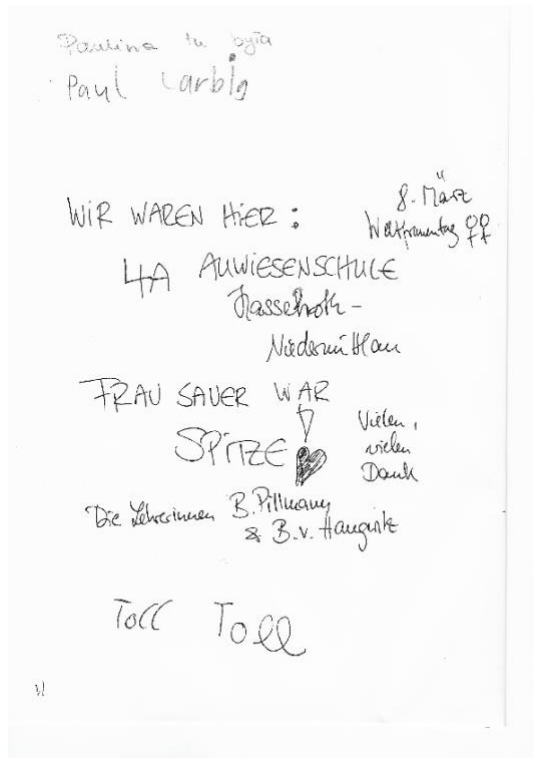 Paulina tu była
Paul Larbig
8. März
Weltfrauentag ♀♀
WIR WAREN HIER:
4A AUWIESENSCHULE
Hasselroth-
Niedermittlau
FRAU SAUER WAR
SPITZE!
Vielen,
vielen
Dank
Die Lehrerinnen B. Pillmann
& B. v. Haugwitz
Toll Toll